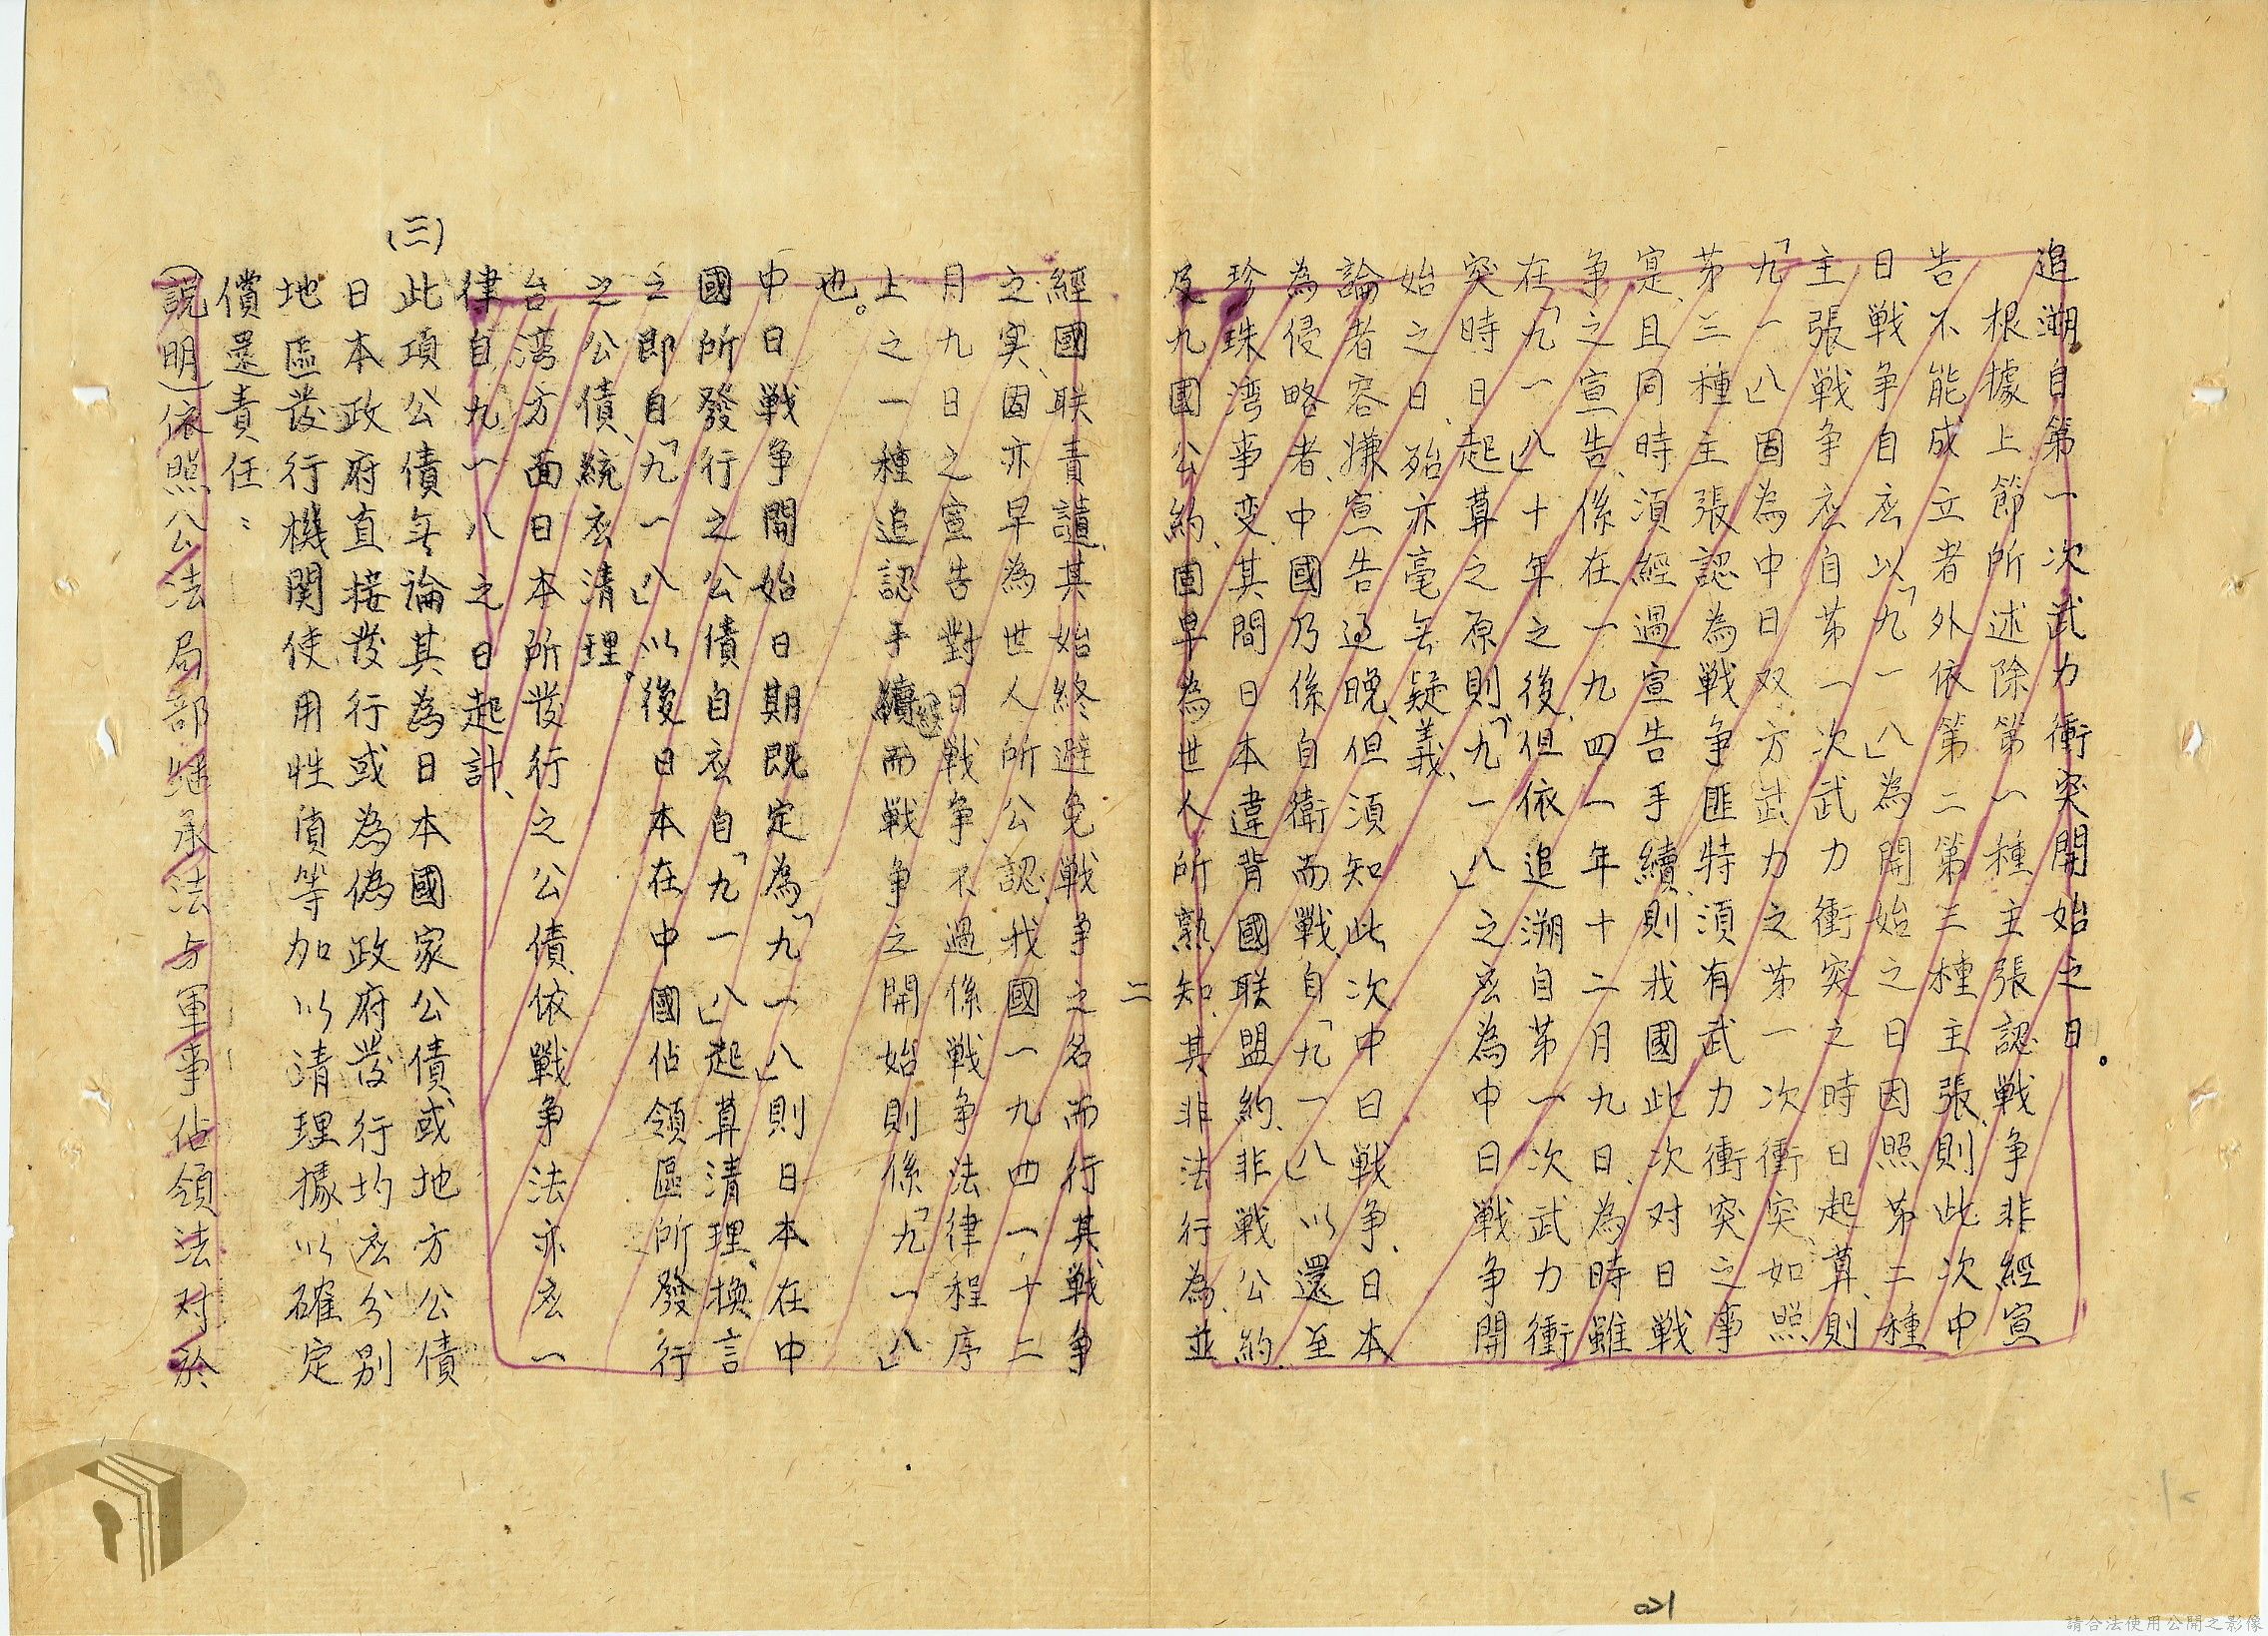 追溯自第一次武力衝突開始之日。
根據上節所述除第一種主張認戦争非經宣
告不能成立者外依第二第三種主張、則此次中
日戦争自应以「九一八」為開始之日因照苐二種
主張戦争应自苐一次武力衝突之時日起算、則
「九一八」固為中日双方武力之苐一次衝突、如照
苐三種主張認為戦争匪特須有武力衝突之事
寔、且同時須經過宣告手續、則我國此次对日戦
争之宣告、係在一九四一年十二月九日、為時雖
在「九一八」十年之後、但依追溯自苐一次武力衝
突時日起算之原則「九一八」之应為中日戦争開
始之日、殆亦毫无疑義、
論者容嫌宣告过晚、但須知此次中日戦争、日本
為侵略者、中國乃係自衛而戰、自「九一八」以還至
珍珠湾事变、其間日本違背國联盟約、非戦公約、
及九國公約、固早為世人所熟知、其非法行為、並
二
經國联責譴、其始終避免戦争之名而行其戦争
之実、固亦早為世人所公認、我國一九四一、十二
月九日之宣告對日戦争、不過係戦争法律程序
上之一種追認手續而戦争之開始則係「九一八」
也。
中日戦争開始日期既定為「九一八」則日本在中
國所發行之公債自应自「九一八」起算清理、換言
之即自「九一八」以後日本在中國佔領區所發行
之公債、統应清理。
台湾方面日本所发行之公債、依戰争法亦应一
律自九一八之日起計、
(三)
此項公債无論其為日本國家公債、或地方公債
日本政府直接发行或為偽政府发行均应分别
地區发行機関使用性質等加以清理據以確定
償還責任：
(説明)依照公法局部继承法与軍事佔領法对於
21
請合法使用公開之影像